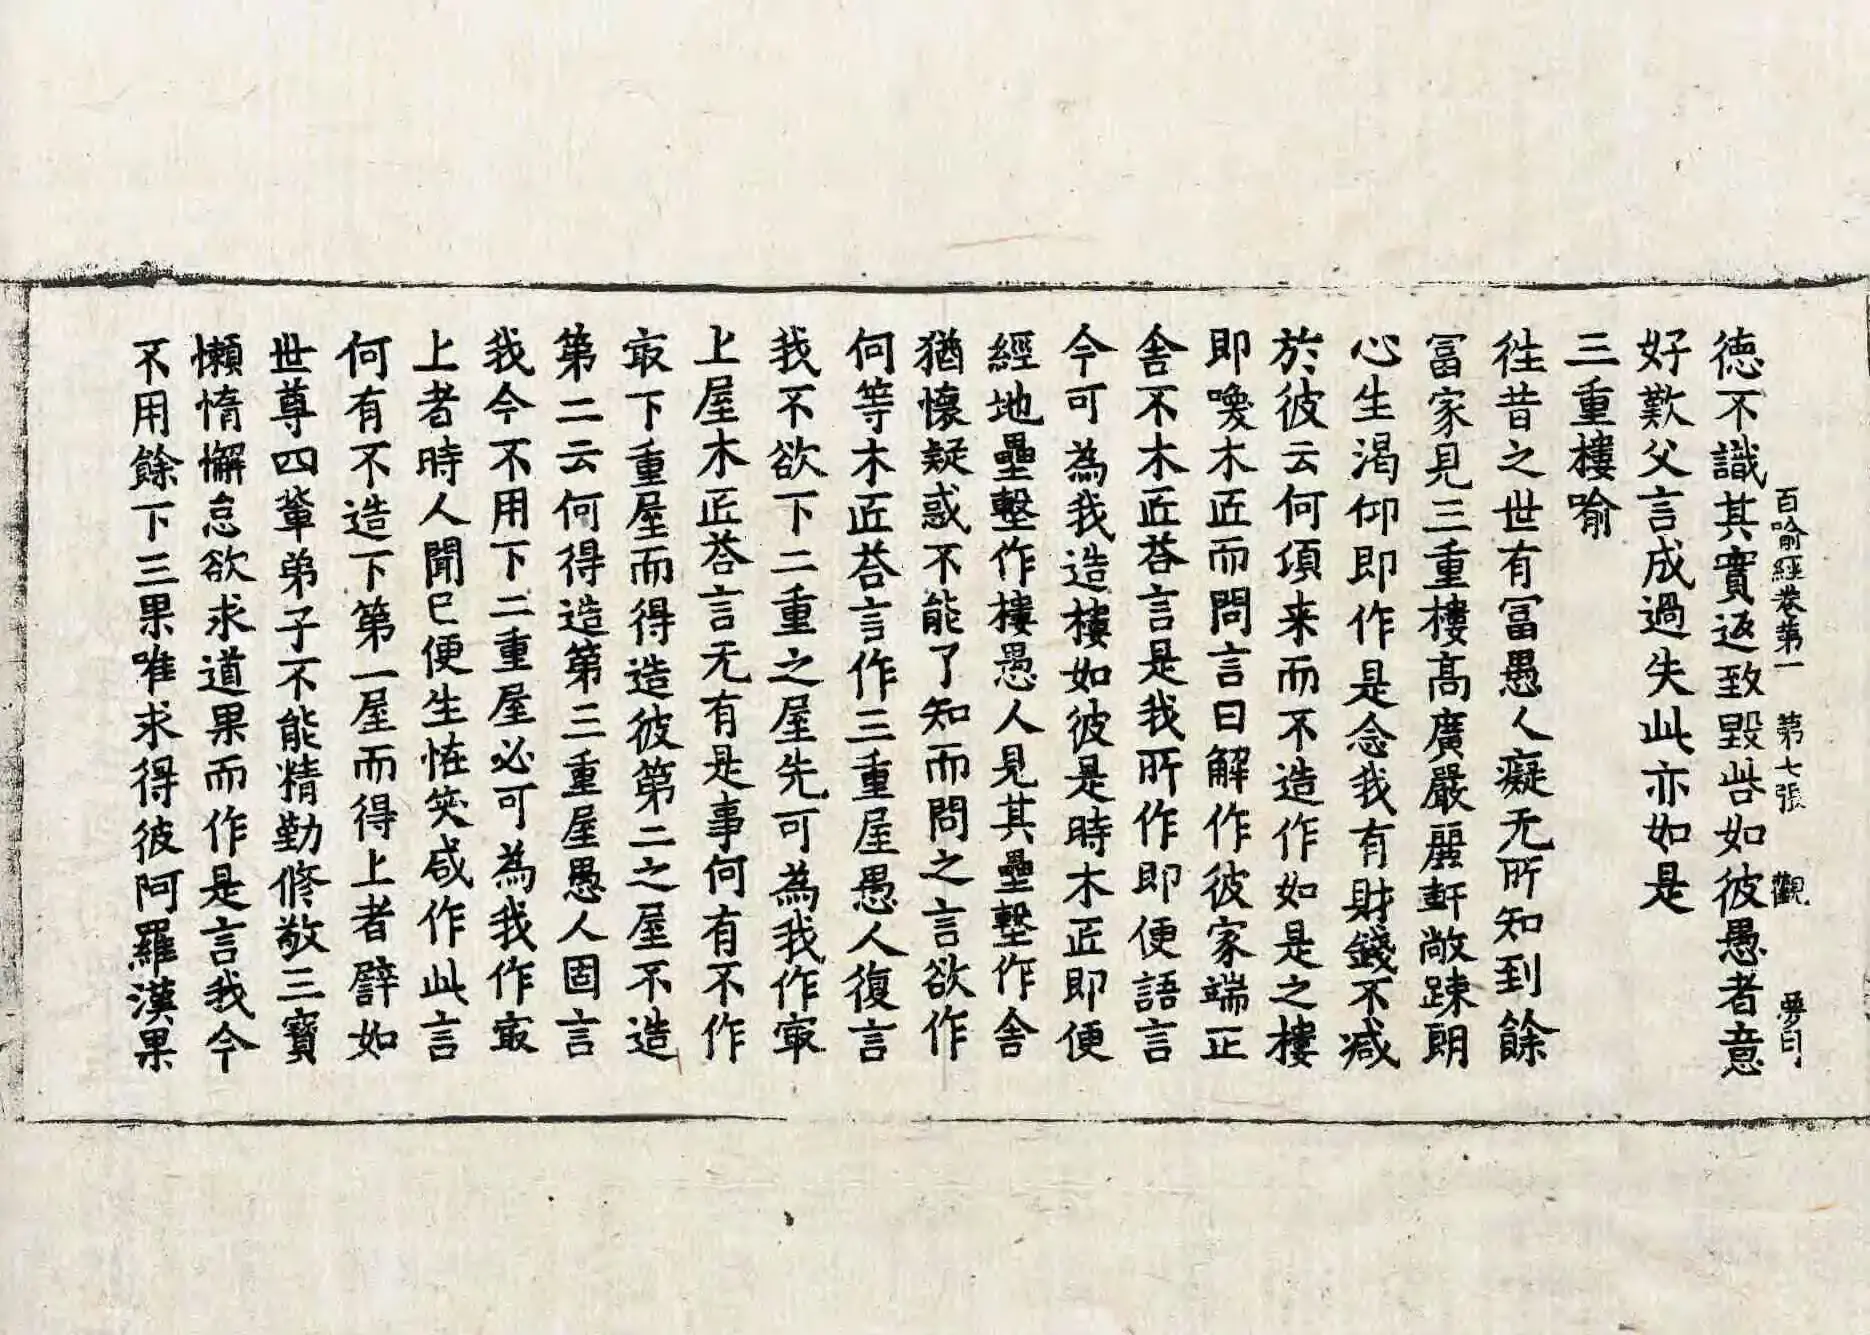 百喻經卷第一 第七張 觀 夢印
德不識其實返致毀呰如彼愚者意
好歎父言成過失此亦如是
三重樓喻
徃昔之世有冨愚人癡无所知到餘
冨家見三重樓高廣嚴麗軒敞踈朗
心生渴仰即作是念我有財錢不减
於彼云何頃来而不造作如是之樓
即喚木匠而問言曰解作彼家端正
舍不木匠荅言是我所作即便語言
今可為我造樓如彼是時木匠即便
經地壘墼作樓愚人見其壘墼作舍
猶懷疑惑不能了知而問之言欲作
何等木匠荅言作三重屋愚人復言
我不欲下二重之屋先可為我作㝡
上屋木匠荅言无有是事何有不作
㝡下重屋而得造彼第二之屋不造
第二云何得造第三重屋愚人固言
我今不用下二重屋必可為我作㝡
上者時人聞已便生恠笑咸作此言
何有不造下第一屋而得上者譬如
世尊四輩弟子不能精勤修敬三寶
懶惰懈怠欲求道果而作是言我今
不用餘下三果唯求得彼阿羅漢果